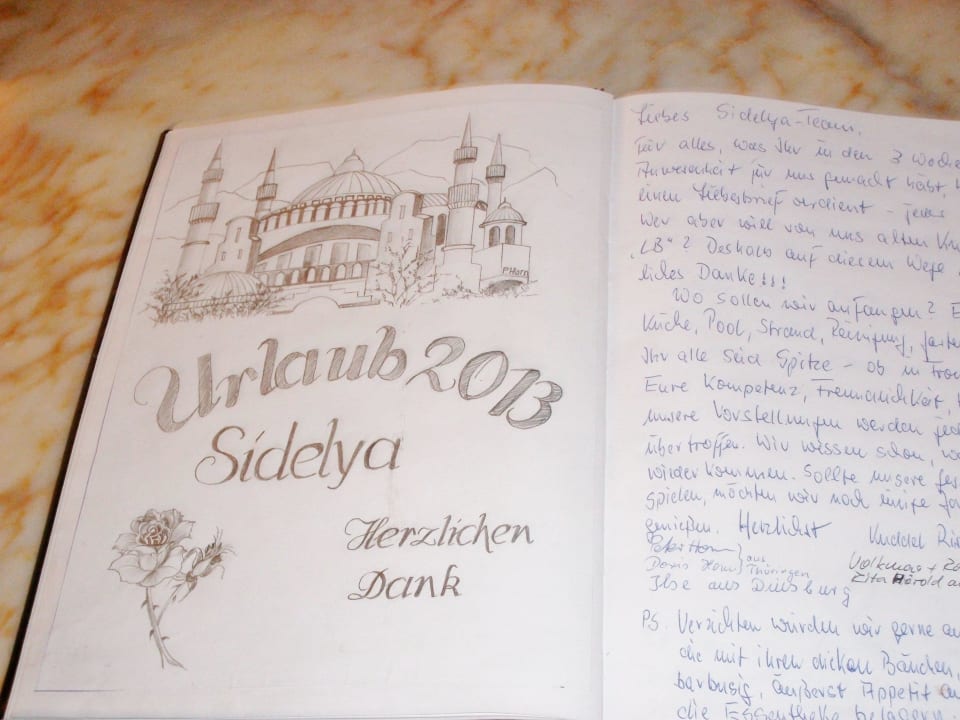 P Horn
Urlaub 2013
Sidelya
Herzlichen
Dank
Liebes Sidelya-Team,
für alles, was Ihr in den 3 Woche
Anwesenheit für uns gemacht habt,
einen Liebesbrief verdient - jeder
Wer aber will von uns alten
"LB"? Deshalb auf diesem Wege
liches Danke!!!
Wo sollen wir anfangen?
Küche, Pool, Strand, Reinigung,
Ihr alle seid Spitze - ob in
Eure Kompetenz, Freundlichkeit,
unsere Vorstellungen werden
übertroffen. Wir wissen schon,
wieder kommen. Sollte unsere
spielen, möchten wir noch einige
genießen. Herzlichst Kuddel
Peter Horn
Doris Horn aus Thüringen
Volkmar +
Rita Harold
Ilse aus Duisburg
PS. Verzichten würden wir gerne
die mit ihren dicken Bäuchen,
barbusig, äußerst Appetit
die Essentheke belagern